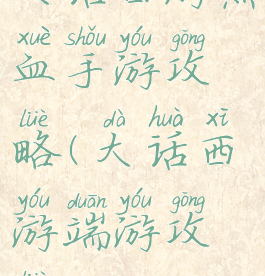 xuè shǒu yóu gōng
血手游攻
lüè dà huà xī
略(大话西
yóu duān yóu gōng
游端游攻